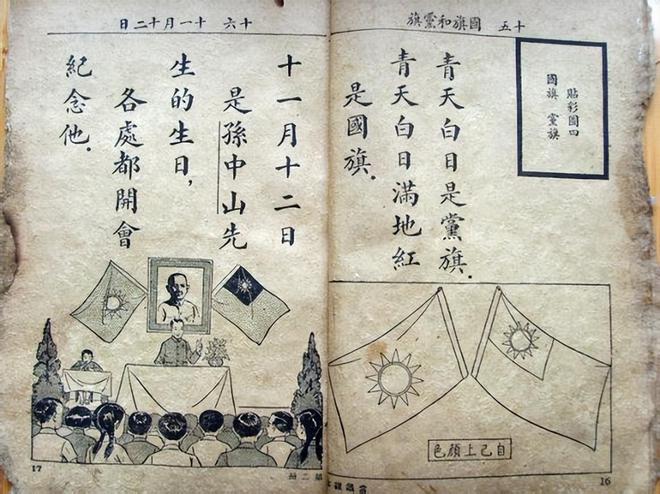 十五 國旗和黨旗
貼彩圖四
國旗 黨旗
青天白日是黨旗.
青天白日滿地紅
是國旗.
自己上顏色
16
十六 十一月十二日
十一月十二日
是孫中山先
生的生日,
各處都開會
紀念他.
17